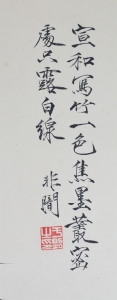 宣和寫竹一色焦墨叢密
處只露白線
非闇